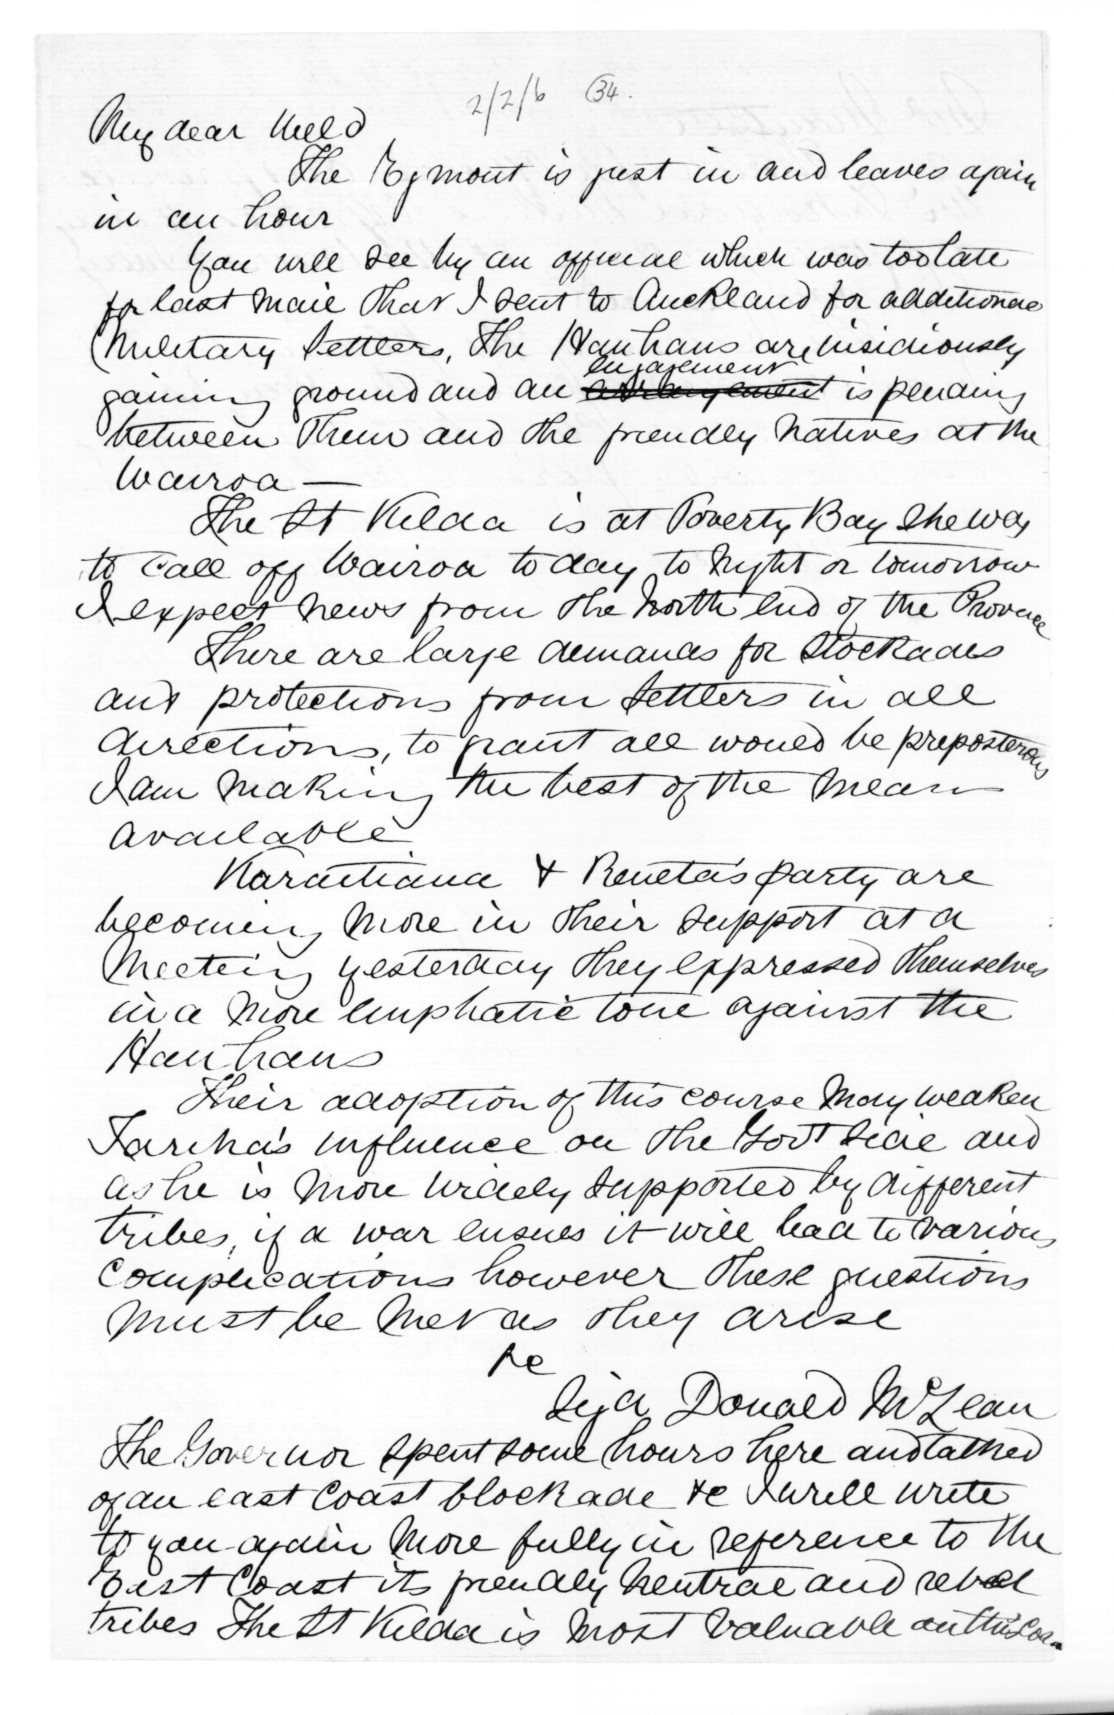 2/2/6 34.
My dear Weld
The Egmont is just in and leaves again
in an hour
You will see by an official which was too late
for last mail that I sent to Auckland for additional
Military Settlers, The Hauhaus are insidiously
gaining ground and an engagement arrangement is pending
between them and the friendly Natives at the
Wairoa —
The St Kilda is at Poverty Bay She was
to call off Wairoa today, to night or tomorrow
I expect news from the North end of the Province
There are large demands for Stockades
and protections from Settlers in all
directions, to grant all would be preposterous
I am making the best of the means
available
Karaitiana & Reneta's party are
becoming more in their support at a
Meeting yesterday they expressed themselves
in a more emphatic tone against the
Hauhaus
Their adoption of this course may weaken
Tareha's influence on the Govt side and
as he is more widely supported by different
tribes, if a war ensues it will lead to various
complications however these questions
must be met as they arise
&c
Sigd Donald McLean
The Governor spent some hours here and talked
of an east Coast blockade &c I will write
to you again more fully in reference to the
East Coast its friendly neutral and rebel
tribes The St Kilda is most valuable on this Coa